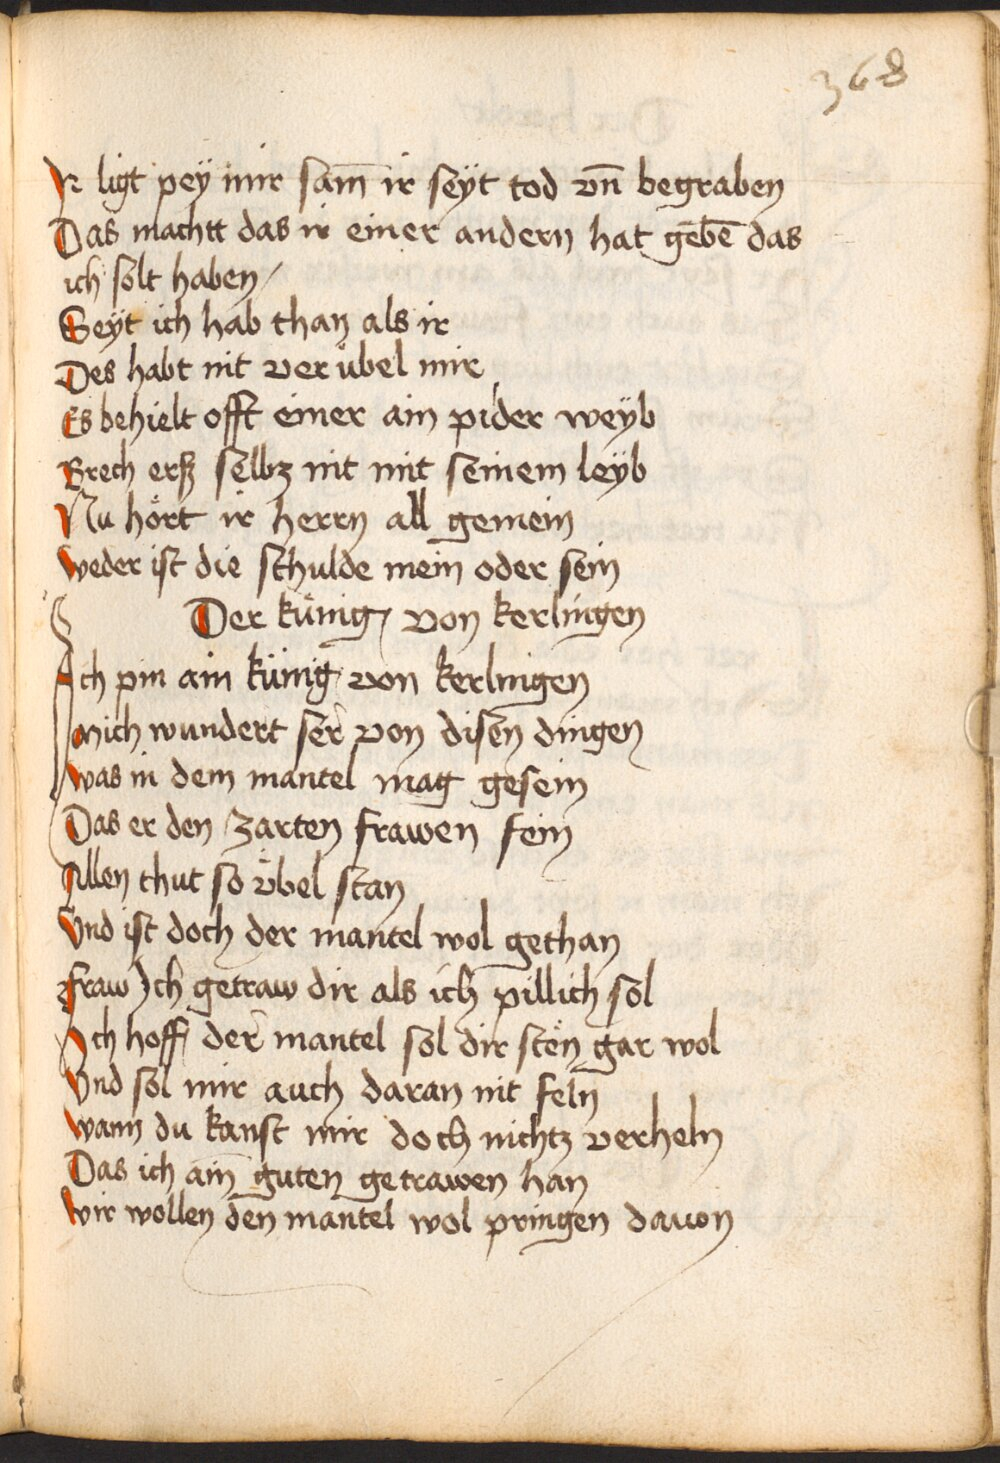 368
Ir ligt pey mir sam̄ ir seyt tod vn̄ begraben
Das machtt das ir einer andern hat gebē das
ich solt haben /
Seyt ich hab than als ir
Des habt nit ver übel mir
Es behielt offt einer ain pider weyb
Brech erß selbz nit mit seinem leyb
Nu hört ir herrn all gemein
weder ist die schulde mein oder sein
Der künig / von kerlingen
Ich pin ain künig von kerlingen
mich wundert ser von disen dingen
was in dem mantel mag gesein
Das er den zarten frawen fein
Allen thut so übel stan
Vnd ist doch der mantel wol gethan
fraw Ich getraw dir als ich pillich sol
Ich hoff der mantel sol dir sten gar wol
Vnd sol mir auch daran nit feln
wann du kanst mir doch nichtz verheln
Das ich ain guten getrawen han
wir wollen den mantel wol pringen dauon